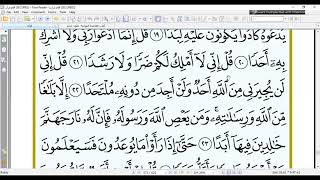 يَدْعُوهُ كَادُوا۟ يَكُونُونَ عَلَيْهِ لِبَدًا ﴿١٩﴾ قُلْ إِنَّمَآ أَدْعُوا۟ رَبِّى وَلَآ أُشْرِكُ
بِهِۦٓ أَحَدًا ﴿٢٠﴾ قُلْ إِنِّى لَآ أَمْلِكُ لَكُمْ ضَرًّا وَلَا رَشَدًا ﴿٢١﴾ قُلْ إِنِّى
لَن يُجِيرَنِى مِنَ ٱللَّهِ أَحَدٌ وَلَنْ أَجِدَ مِن دُونِهِۦ مُلْتَحَدًا ﴿٢٢﴾ إِلَّا بَلَٰغًا
مِّنَ ٱللَّهِ وَرِسَٰلَٰتِهِۦ ۚ وَمَن يَعْصِ ٱللَّهَ وَرَسُولَهُۥ فَإِنَّ لَهُۥ نَارَ جَهَنَّمَ
خَٰلِدِينَ فِيهَآ أَبَدًا ﴿٢٣﴾ حَتَّىٰٓ إِذَا رَأَوْا۟ مَا يُوعَدُونَ فَسَيَعْلَمُونَ